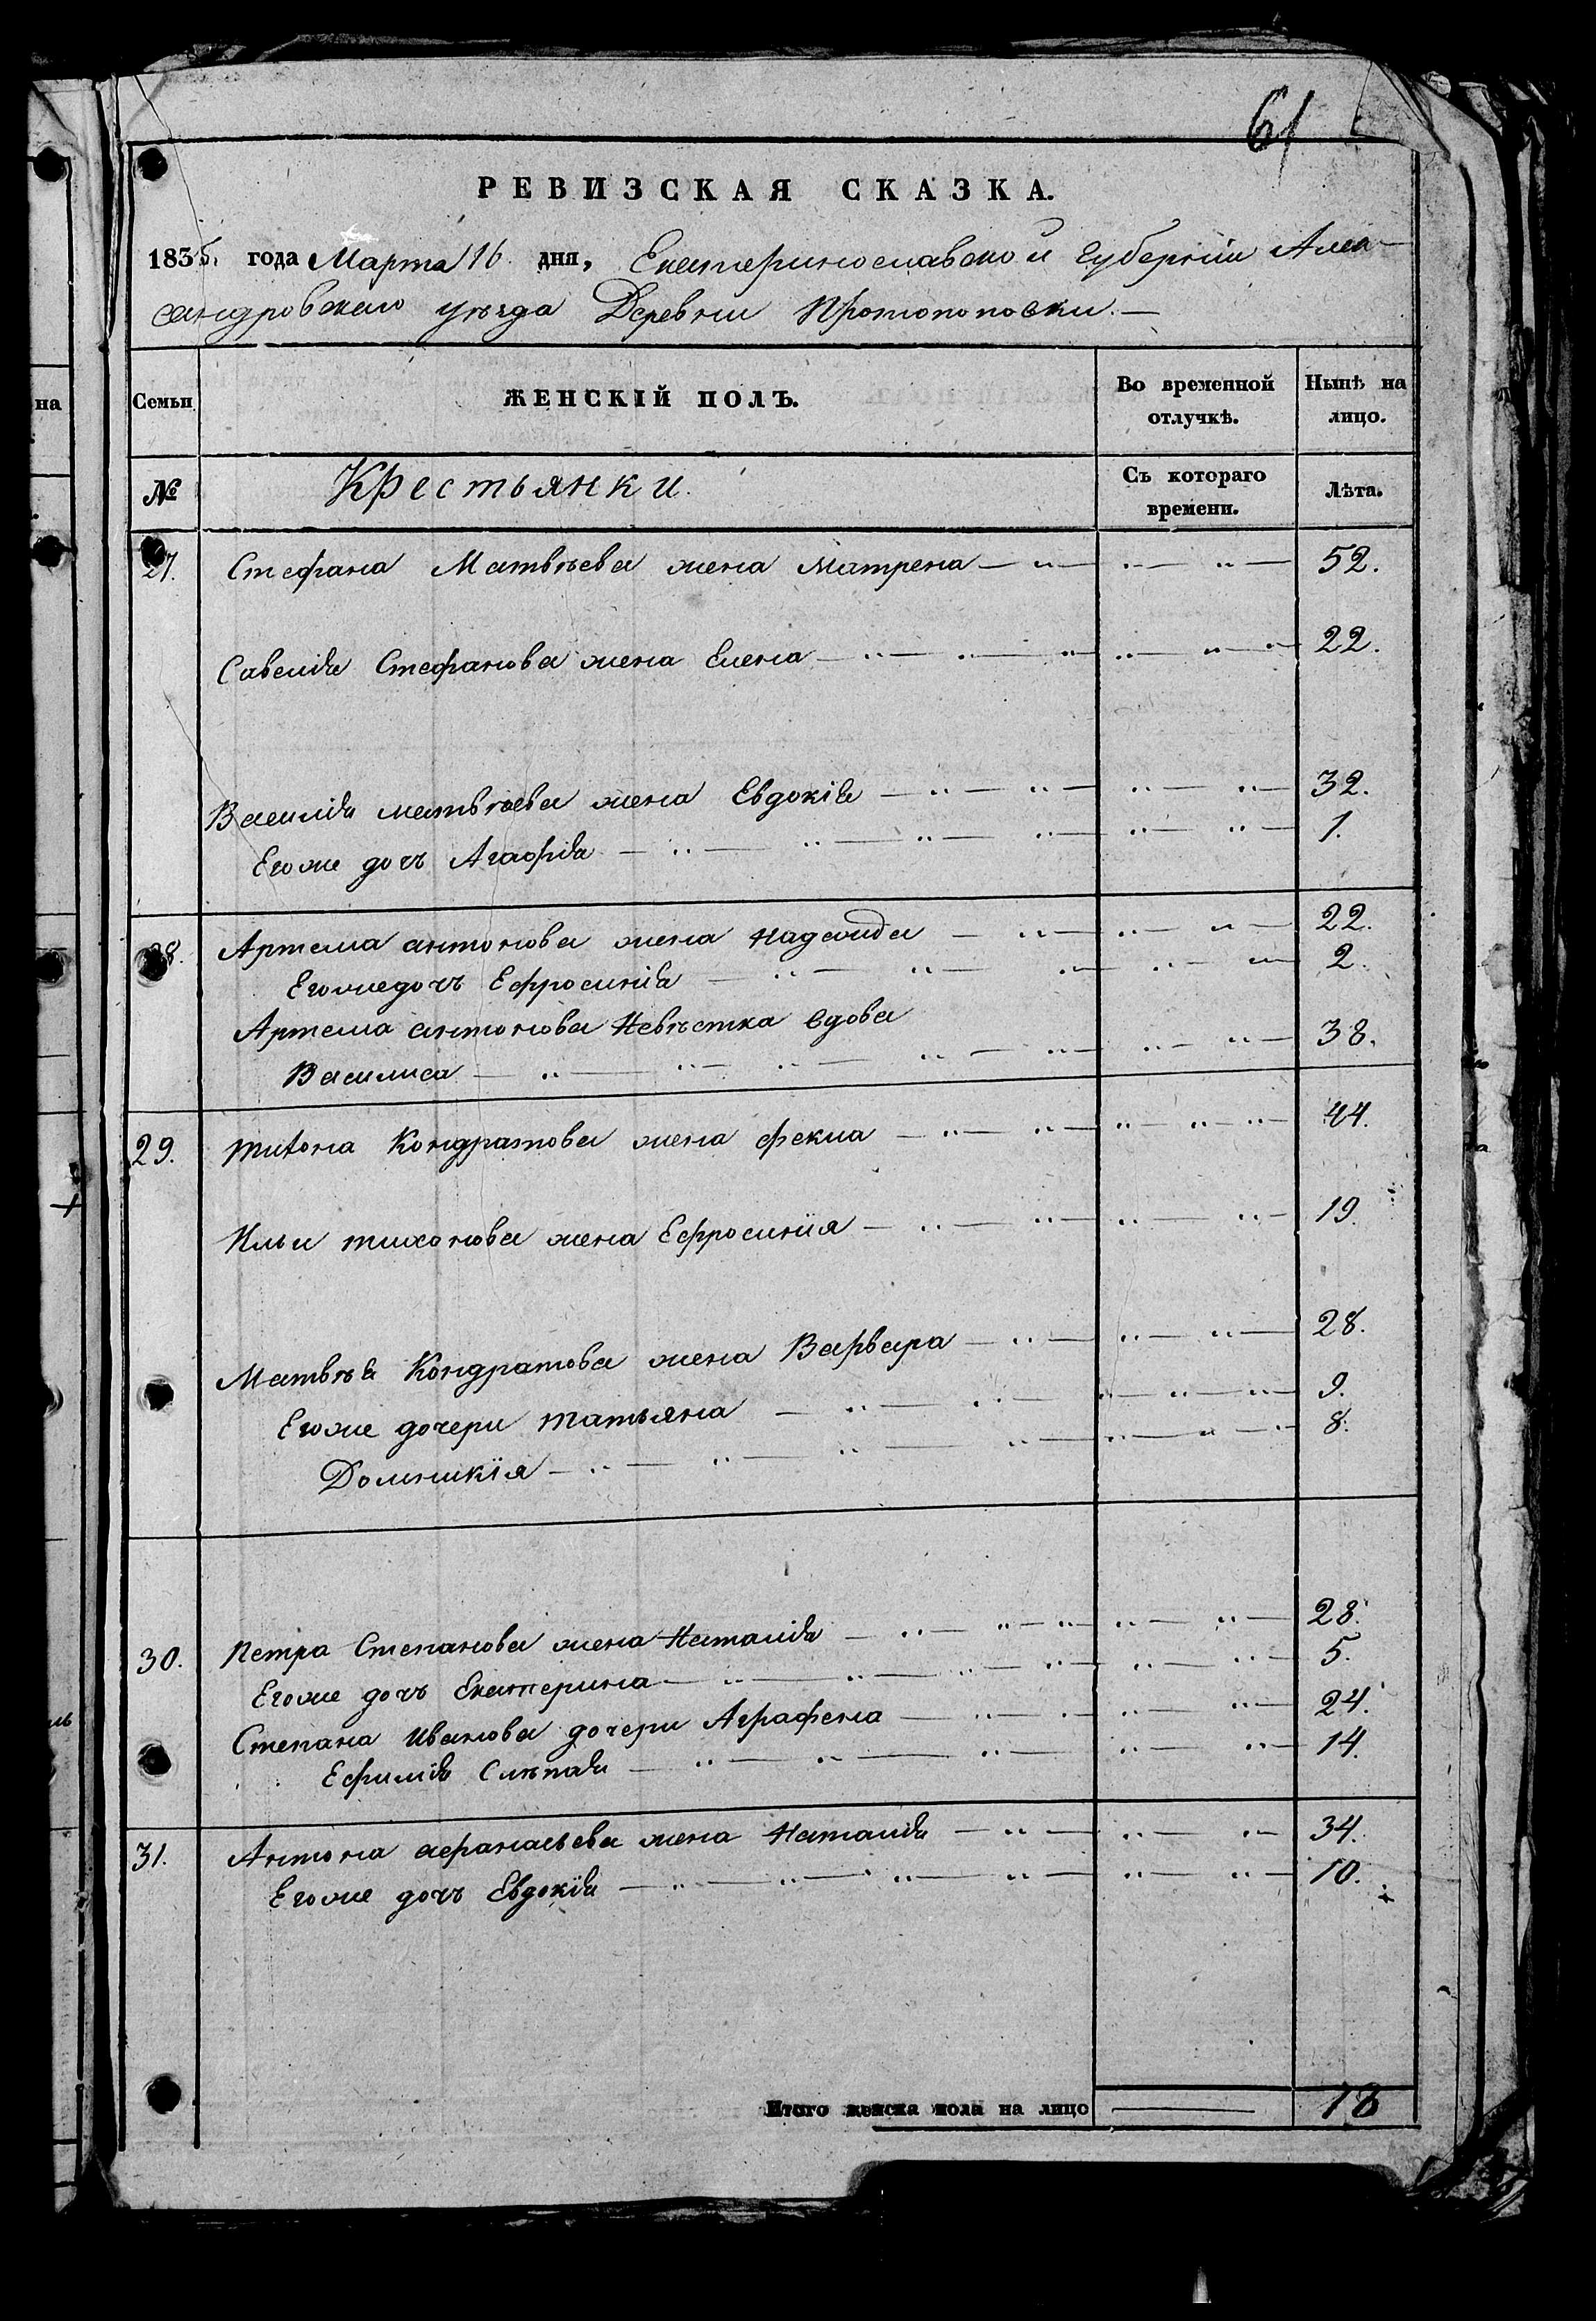 61
РЕВИЗСКАЯ СКАЗКА.
1835. года Марта 16. дня, Екатеринославской губернии Алек-
сандровскаго уѣзда Деревни Протопоповки. —
Семьи
ЖЕНСКІЙ ПОЛЪ.
Во временной отлучкѣ.
Нынѣ на лицо.
№
Крестьянки.
Съ котораго времени.
Лѣта.
27. Стефана Матвѣева жена Матрена 52.
Савелія Стефанова жена Елена 22.
Василія матвѣева жена Евдокія 32.
Егоже дочь Агафія 1.
28. Артема антонова жена Надежда 22.
Егоже дочь Ефросинія 2.
Артема антонова Невѣстка вдова
Василиса 38.
29. тихона Кондратова жена фекла 44.
Ильи тихонова жена Ефросинія 19.
Матвѣя Кондратова жена Варвара 28.
Егоже дочери татьяна 9.
Домникія 8.
30. Петра Степанова жена Наталія 28.
Егоже дочь Екатерина 5.
Степана Иванова дочери Аграфена 24.
Ефимія Слѣпая 14.
31. Антона афанасьева жена Наталія 34.
Егоже дочь Евдокія 10.
Итого женска пола на лицо 18